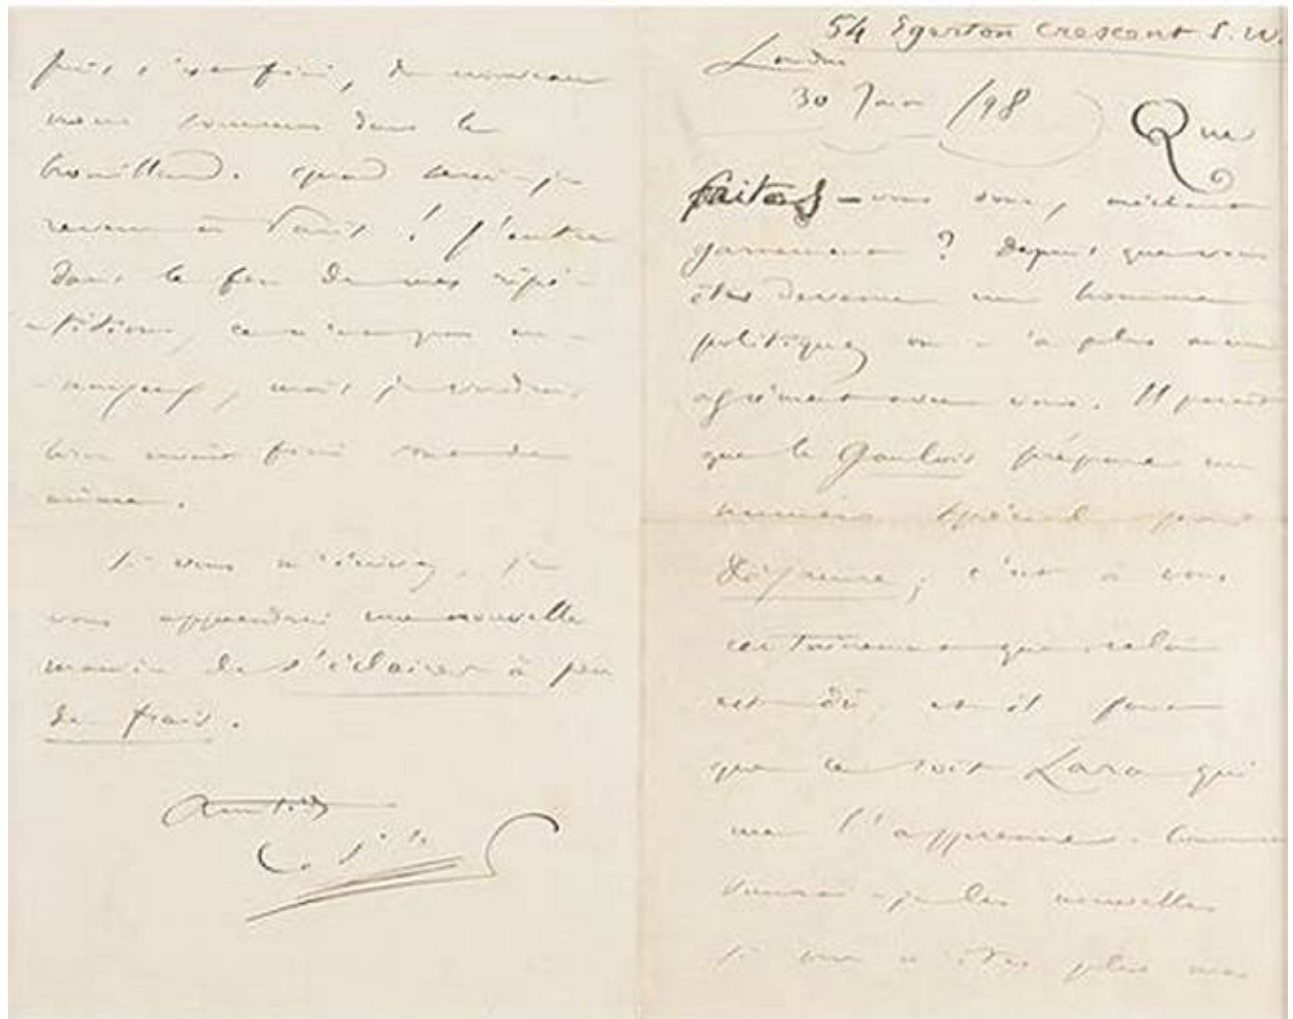 54 Egerton Crescent S.W.
Londres
30 Juin /98
Que
faites-vous donc, méchant
garnement ? Depuis que vous
êtes devenu un homme
politique, on n'a plus aucun
agrément avec vous. Il paraît
que le Gaulois prépare un
numéro spécial pour
Déjanire ; c'est à vous
certainement que cela
est dû et il faut
que ce soit Lara qui
me l'apprenne. Comment
saurai-je des nouvelles
si vous n'êtes plus mon
puis c'est fini, de nouveau
nous sommes dans le
brouillard. Quand serai-je
revenu à Paris ! J'entre
dans le feu de mes répé-
-titions, ce n'est pas en-
-nuyeux, mais je voudrais
bien avoir fini tout de
même.
Si vous m'écrivez, je
vous apprendrai une nouvelle
manière de s'éclairer à peu
de frais.
Amitiés
C. St S.